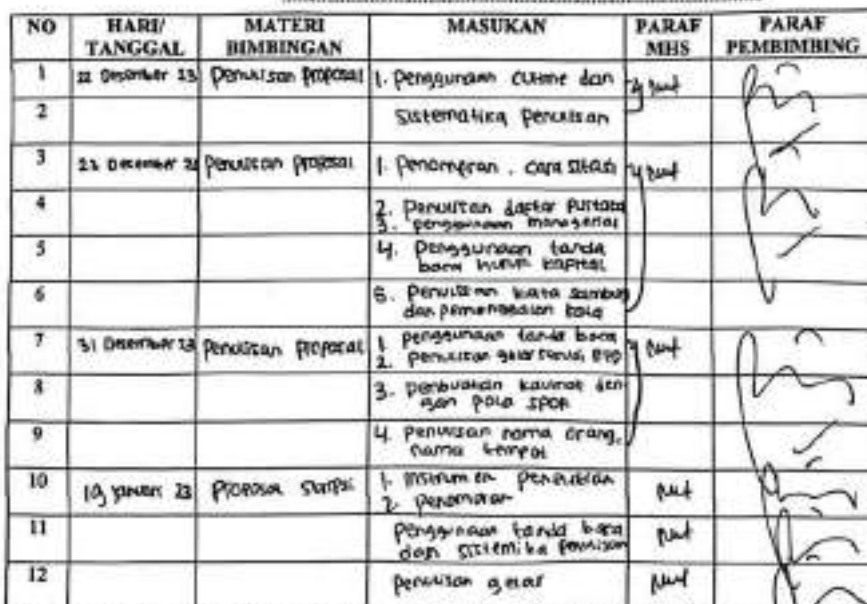 NO HARI/ TANGGAL MATERI BIMBINGAN MASUKAN PARAF MHS PARAF PEMBIMBING
1 22 Desember 23 Penulisan proposal 1. Penggunaan dan
2 Sistematika Penulisan
3 22 Desember Penulisan proposal 1. Penomeran, cara sitasi
4 2. Penulisan daftar pustaka
3. penggunaan
5 4. Penggunaan tanda
baca huruf kapital
6 5. Penulisan kata sambung
dan pemenggalan kata
7 31 Desember 23 Penulisan proposal 1. penggunaan tanda baca
2. penulisan
8 3. Pembuatan kalimat den-
gan pola SPOK
9 4. Penulisan nama orang,
nama tempat
10 19 Januari 23 Proposal Skripsi 1. Instrumen Penelitian
2. Penomoran
11 Penggunaan tanda baca
dan sistemika penulisan
12 Penulisan gelar